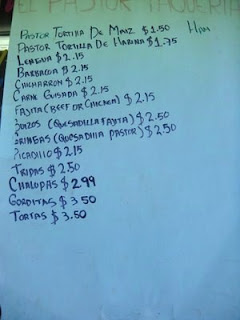 EL PASTOR TAQUERIA
PASTOR TORTILLA DE MAIZ $1.50
PASTOR TORTILLA DE HARINA $1.75
LENGUA $2.15
BARBACOA $2.15
CHICHARRON $2.15
CARNE GUISADA $2.15
FAJITA (BEEF OR CHICKEN) $2.15
(QUESADILLA FAJITA) $2.50
(QUESADILLA PASTOR) $2.50
PICADILLO $2.15
TRIPAS $2.50
CHALUPAS $2.99
GORDITAS $3.50
TORTAS $3.50